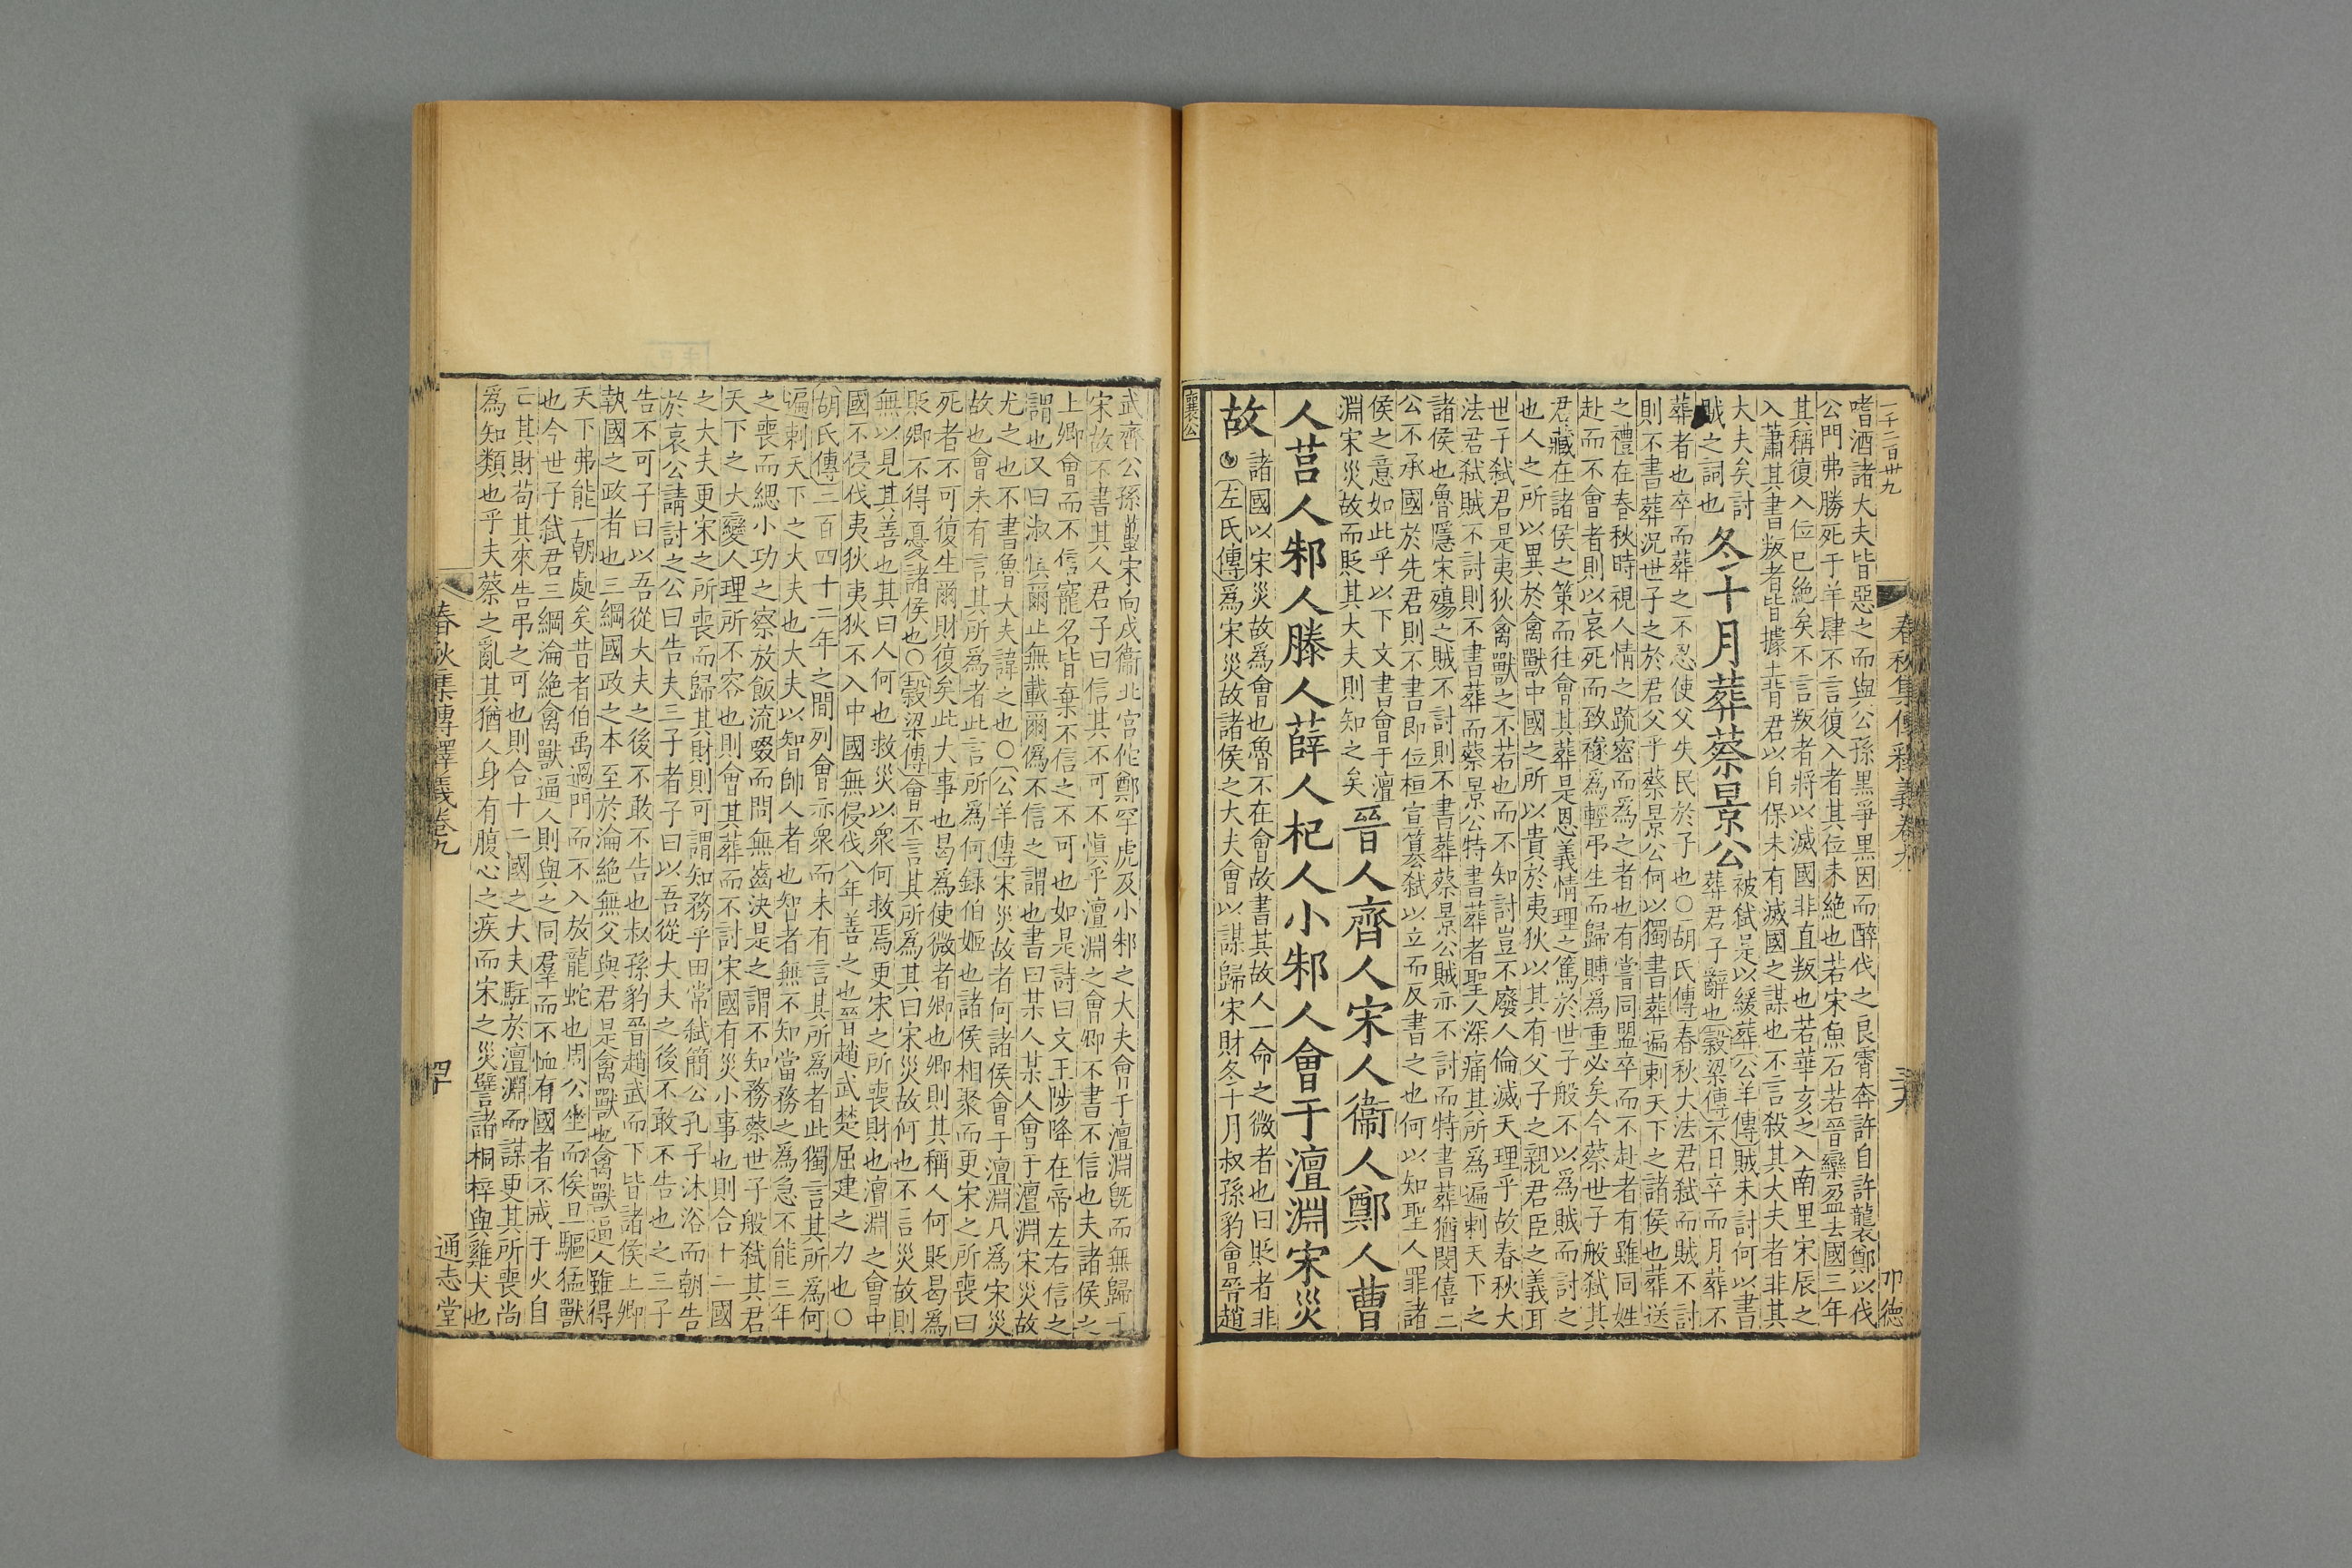 一千二百卅九
春秋集傳釋義卷九
三九
嗜酒諸大夫皆惡之而與公孫黑爭黑因而醉伐之良霄奔許自許襲鄭以伐
公門弗勝死于羊肆不言復入者其位未絶也若宋魚石若晉欒盈去國三年
其稱復入位已絶矣不言叛者將以滅國非直叛也若華亥之入南里宋辰之
入蕭其書叛者皆據土背君以自保未有滅國之謀也不言殺其大夫者非其
大夫矣討
賊之詞也
冬十月葬蔡景公
被弑是以緩葬公羊傳賊未討何以書
葬君子辭也穀梁傳不日卒而月葬不
葬者也卒而葬之不忍使父失民於子也○胡氏傳春秋大法君弑而賊不討
則不書葬況世子之於君父乎蔡景公何以獨書葬遍刺天下之諸侯也葬送
之禮在春秋時視人情之疏密而爲之者也有嘗同盟卒而不赴者有雖同姓
赴而不會者則以哀死而致襚爲輕弔生而歸賻爲重必矣今蔡世子般弑其
君藏在諸侯之策而往會其葬是恩義情理之篤於世子般不以爲賊而討之
也人之所以異於禽獸中國之所以貴於夷狄以其有父子之親君臣之義耳
世子弑君是夷狄禽獸之不若也而不知討豈不廢人倫滅天理乎故春秋大
法君弑賊不討則不書葬而蔡景公特書葬者聖人深痛其所爲遍刺天下之
諸侯也魯隱宋殤之賊不討則不書葬蔡景公賊亦不討而特書葬猶閔僖二
公不承國於先君則不書即位桓宣簒弑以立而反書之也何以知聖人罪諸
侯之意如此乎以下文書會于澶
淵宋災故而貶其大夫則知之矣
晉人齊人宋人衞人鄭人曹
人莒人邾人滕人薛人杞人小邾人會于澶淵宋災
故
諸國以宋災故爲會也魯不在會故書其故人一命之微者也曰貶者非
左氏傳爲宋災故諸侯之大夫會以謀歸宋財冬十月叔孫豹會晉趙
襄公
武齊公孫蠆宋向戌衞北宮佗鄭罕虎及小邾之大夫會于澶淵旣而無歸于
宋故不書其人君子曰信其不可不愼乎澶淵之會卿不書不信也夫諸侯之
上卿會而不信寵名皆棄不信之不可也如是詩曰文王陟降在帝左右信之
謂也又曰淑愼爾止無載爾僞不信之謂也書曰某人某人會于澶淵宋災故
尤之也不書魯大夫諱之也○公羊傳宋災故者何諸侯會于澶淵凡爲宋災
故也會未有言其所爲者此言所爲何録伯姬也諸侯相聚而更宋之所喪曰
死者不可復生爾財復矣此大事也曷爲使微者卿也卿則其稱人何貶曷爲
貶卿不得憂諸侯也○穀梁傳會不言其所爲其曰宋災故何也不言災故則
無以見其善也其曰人何也救災以衆何救焉更宋之所喪財也澶淵之會中
國不侵伐夷狄夷狄不入中國無侵伐八年善之也晉趙武楚屈建之力也○
胡氏傳二百四十二年之間列會亦衆而未有言其所爲者此獨言其所爲何
遍刺天下之大夫也大夫以智帥人者也智者無不知當務之爲急不能三年
之喪而緦小功之察放飯流歠而問無齒決是之謂不知務蔡世子般弑其君
天下之大變人理所不容也則會其葬而不討宋國有災小事也則合十二國
之大夫更宋之所喪而歸其財則可謂知務乎田常弑簡公孔子沐浴而朝告
於哀公請討之公曰告夫三子者子曰以吾從大夫之後不敢不告也之三子
告不可子曰以吾從大夫之後不敢不告也叔孫豹晉趙武而下皆諸侯上卿
執國之政者也三綱國政之本至於淪絶無父與君是禽獸也禽獸逼人雖得
天下弗能一朝處矣昔者伯禹過門而不入放龍蛇也周公坐而俟旦驅猛獸
也今世子弑君三綱淪絶禽獸逼人則與之同羣而不恤有國者不戒于火自
亡其財苟其來告弔之可也則合十二國之大夫駐於澶淵而謀更其所喪尚
爲知類也乎夫蔡之亂其猶人身有腹心之疾而宋之災譬諸桐梓與雞犬也
春秋集傳釋義卷九
罕
通志堂